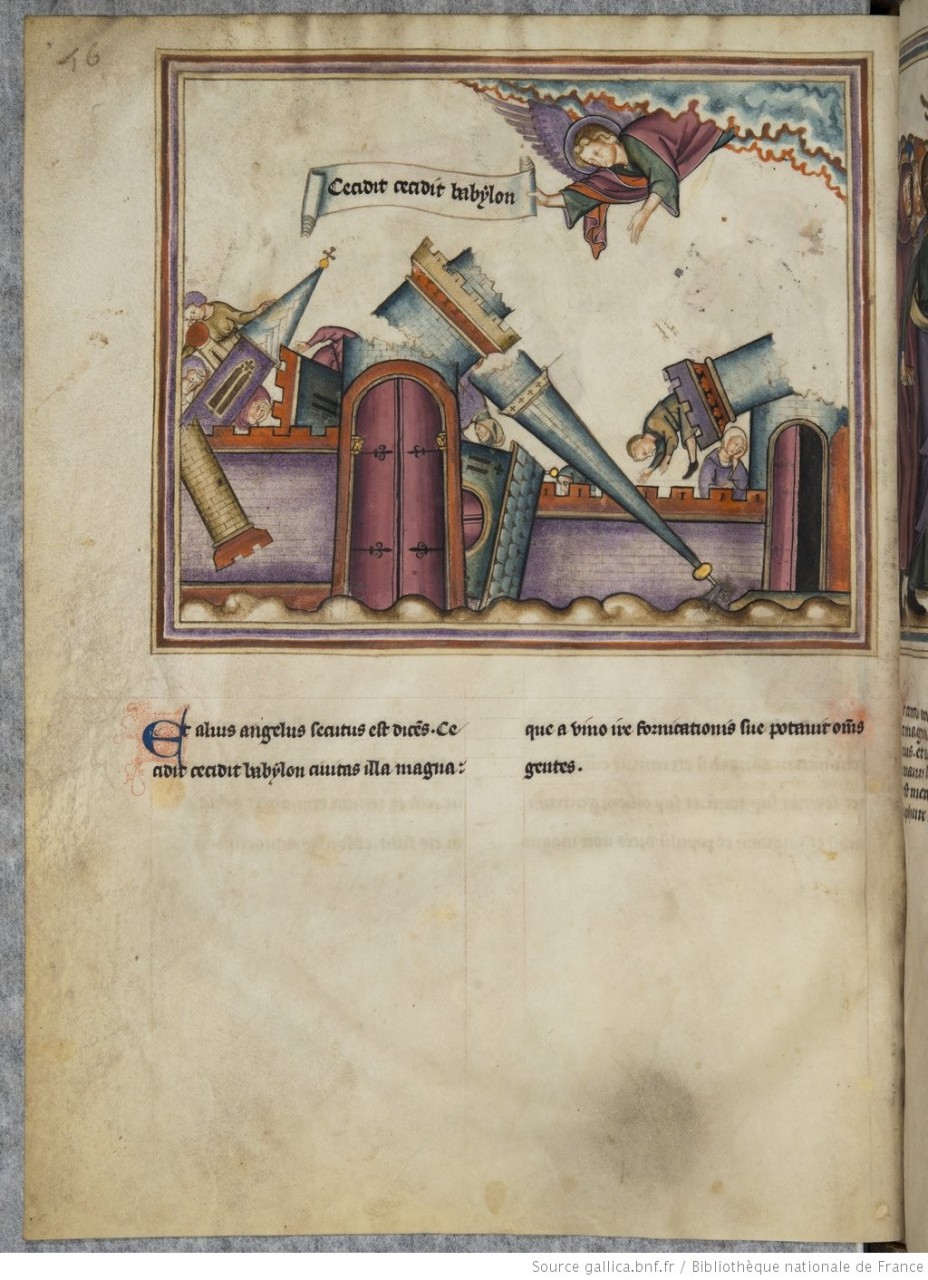 46
Cecidit cecidit babylon
Et alius angelus secutus est dicēs. Ce
cidit cecidit babylon ciuitas illa magna:
que a vino ire fornicationis sue potauit om̄s
gentes.
Source gallica.bnf.fr / Bibliothèque nationale de France